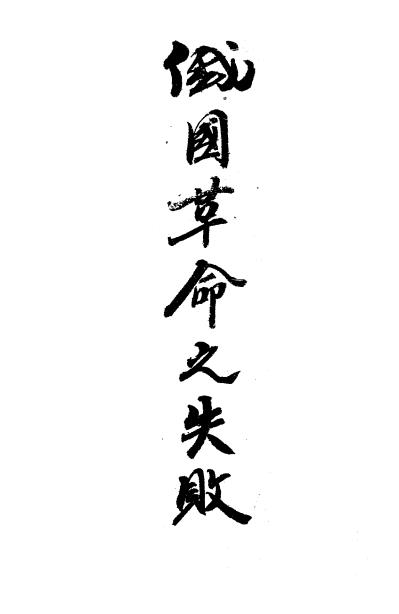 俄國革命之失敗